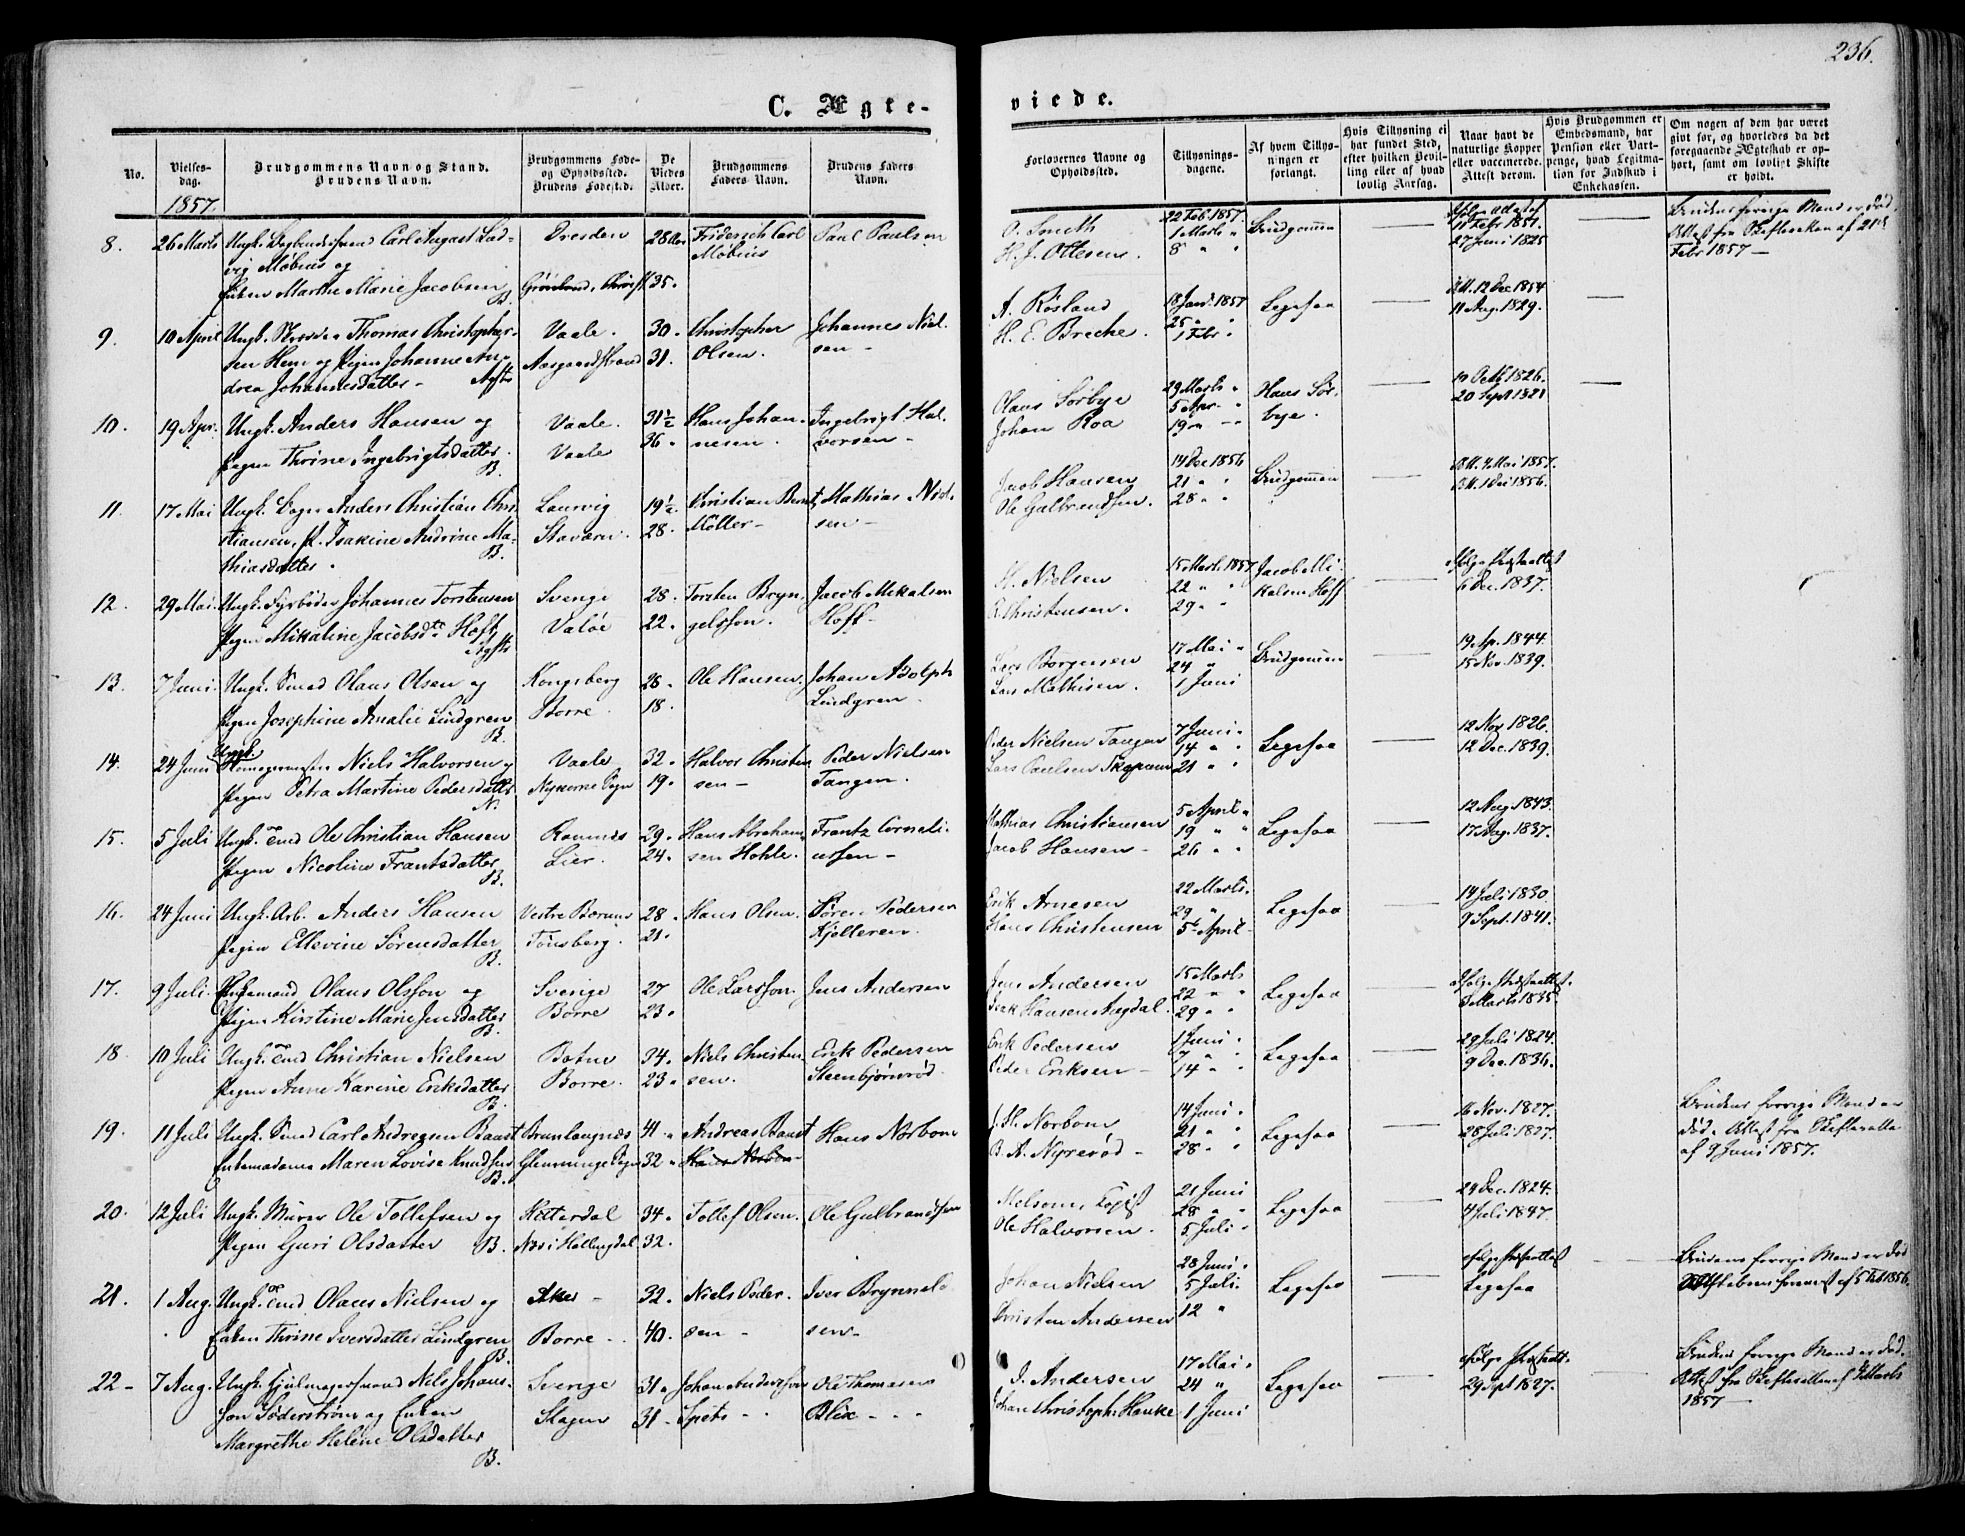 236.
C. Ægte-
viede.
No.
Vielses-
dag.
Brudgommens Navn og Stand.
Brudens Navn.
Brudgommens Føde-
og Opholdssted.
Brudens Fødested.
De
Viedes
Alder.
Brudgommens
Faders Navn.
Brudens Faders
Navn.
Forlovernes Navne og
Opholdssted.
Tillysnings-
dagene.
Af hvem Tillys-
ningen er
forlangt.
Hvis Tillysning ei
har fundet Sted,
efter hvilken Bevil-
ling eller af hvad
lovlig Aarsag.
Naar havt de
naturlige Kopper
eller vaccinerede.
Attest derom.
Hvis Brudgommen er
Embedsmand, har
Pension eller Vart-
penge, hvad Legitma-
tion for Indskud i
Enkekassen.
Om nogen af dem har været
givt før, og hvorledes da det
foregaaende Ægteskab er op-
hørt, samt om lovligt Skifte
er holdt.
1857.
8. 26 Marts Ungk. Carl August Lud- Dresden 28 Aar Friderich Carl Paul Paulsen
vig Møbius og Møbius
Enken Marthe Marie Jacobsen 35.
B.
O. Smith 22 Feb. 1857. Brudgommen 11 Febr 1851. Brudens forrige Mand er død
H. J. Ottesen. 1 Marts " 27 Juni 1825 Attest fra Skifteretten af 21de
8 " " Febr 1857 —
9. 10 April Ungk. Thomas Christopher- Vaale. 30. Christopher Johannes Niel-
sen Hem og Pigen Johanne An- Aasgaardstrand 31. Olsen. sen -
drea Johannesdatter -
A. Røsland 18 Jan. 1857 Legesaa Att. 12 Dec 1854
H. E. Breche. 25 " " 11 Aug. 1829.
1 Febr "
10. 19 Apr. Ungk. Anders Hansen og Vaale. 31½ Hans Johan- Ingebrigt Hal-
Pigen Thrine Ingebrigtsdatter. Vaale 36 " nesen. vorsen -
B.
Olaus Sørbye 29 Marts " Hans Sør- 10 Octb 1826.
Johan Roa 5 Apr. " bye. 20 Sept 1821
19 " - "
11. 17 Mai Ungk. Anders Christian Chri- Laurvig 19½ Christian Bernt Mathias Niel-
stiansen, P. Isakine Andrine Ma- Stavern. 28. Møller - sen -
thiasdatter. B.
Jacob Hansen 14 Dec 1856 Brudgommen Att. 4 Mai 1857.
Ole Gulbrandsen. 21 " " Att. 1 Dec 1856.
28 " "
12. 29 Mai Ungk. Fyrbøder Johannes Torstensen Sverige 28. Torsten Bryn- Jacob Mikalsen
Pigen Mikaline Jacobsdtr Hoff, Valøe 22. gelsson. Hoff -
H. Nielsen 15 Marts 1857 Jacob Mi-
Christensen. 22 " " kalsen Hoff 6 Dec. 1837.
29 " "
13. 7 Juni. Ungk. Smed Olaus Olsen og Kongsberg 28 - Ole Hansen. Johan Adolph
Pigen Josephine Amalie Lindgren Borre. 18. Lindgren.
B.
Lars Borgersen 17 Mai " Brudgommen 19 Ap. 1844.
Lars Mathisen. 24 " 15 Nov. 1839.
1 Juni
14. 24 Juni Ungk. Niels Halvorsen og Vaale 32. Halvor Christen- Peder Nielsen
Pigen Petra Martine Pedersdatter Nykerne Pgn 19. sen - Tangen.
N.
Peder Nielsen Tangen 7 Juni " Legesaa 12 Nov 1826.
Lars Paulsen 14 " " 12 Dec. 1839.
21 " "
15. 5 Juli Ungk. Tmd Ole Christian Hansen Ramnes 29. Hans Abraham- Frantz Corneli-
Pigen Nicoline Frantsdatter Lier. 24. sen Hohle. ussen -
B.
Mathias Christiansen 5 April " Legesaa 12 Aug. 1843.
Jacob Hansen - 19 " " 17 Aug. 1837.
26 " "
16. 24 Juni Ungk. Arb. Anders Hansen Vestre Bærum 28. Hans Olsen. Søren Pedersen
Pigen Ellevine Sørensdatter Tønsberg. 21. Kjelleren.
B.
Erik Arnesen 22 Marts. Legesaa 14 Juli 1830
Hans Christensen 29 " 9 Sept. 1841.
5 April -
17. 9 Juli. Olaus Olsson og Sverige 27 Ole Larsson. Jens Andersen
Pigen Kirstine Marie Jensdatter Borre 23.
B.
Jens Andersen 15 Marts Legesaa
Isak Hansen Augdal. 22 " " Marts 1835
29 " "
18. 10 Juli Ungk. Tmd Christian Nielsen Botne 34. Niels Christen- Erik Pedersen
Pigen Anne Karine Eriksdatter Borre. 23. sen. Steenbjørnrød.
B.
Erik Pedersen 1 Juni " Legesaa 29 Juli 1824.
Peder Eriksen - 7 " " 9 Dec. 1836.
14 " "
19. 11 Juli Ungk. Smed Carl Andreasen Baust Brunlaugnæs 41 " Andreas Baust Hans Norbom
Enkemadame Maren Lovise Knudsen Glemminge Pgn 32 " Hans Norbom
B.
J. H. Norbom 14 Juni " Legesaa 16 Nov. 1827. Brudens forrige Mand er
B. A. Nyrerød - 21 " " 28 Juli 1827. død. Attest fra Skifteretten
28 " " af 9 Juni 1857.
20. 12 Juli Ungk. Murer Ole Tollefsen og Hitterdal 34. Tollef Olsen. Ole Gulbrandsen
Pigen Guri Olsdatter B. Næs i Hallingdal 32.
Melsom, 21 Juni Legesaa 24 Dec. 1824.
Ole Halvorsen. 28 " " 4 Juli 1847.
5 Juli "
21. 1 Aug. Ungk. Tmd. Olaus Nielsen og Aker - 32. Niels Peder- Iver Brynnels-
Enken Thrine Iversdatter Lindgren Borre - 40. sen - sen -
B.
Johan Nielsen 28 Juni " Legesaa Brudens forrige Mand er død
Christen Andersen 5 Juli. Legesaa af 5 Feb 1856.
12 "
22 - 7 Aug. Ungk. Hjulmagersvend Nels Johans- Sverige 31 " Johan Andersson Ole Thomesen
son Søderstrøm og Enken Slagen 31 - Spets - Blix -
Margrethe Helene Olsdatter
B.
J. Andersen 17 Mai. Legesaa Brudens forrige Mand er død.
Johan Christoph. Hauke 24 " 29 Sept 1827. Attest fra Skifteretten af Marts
1 Juni 1857 —